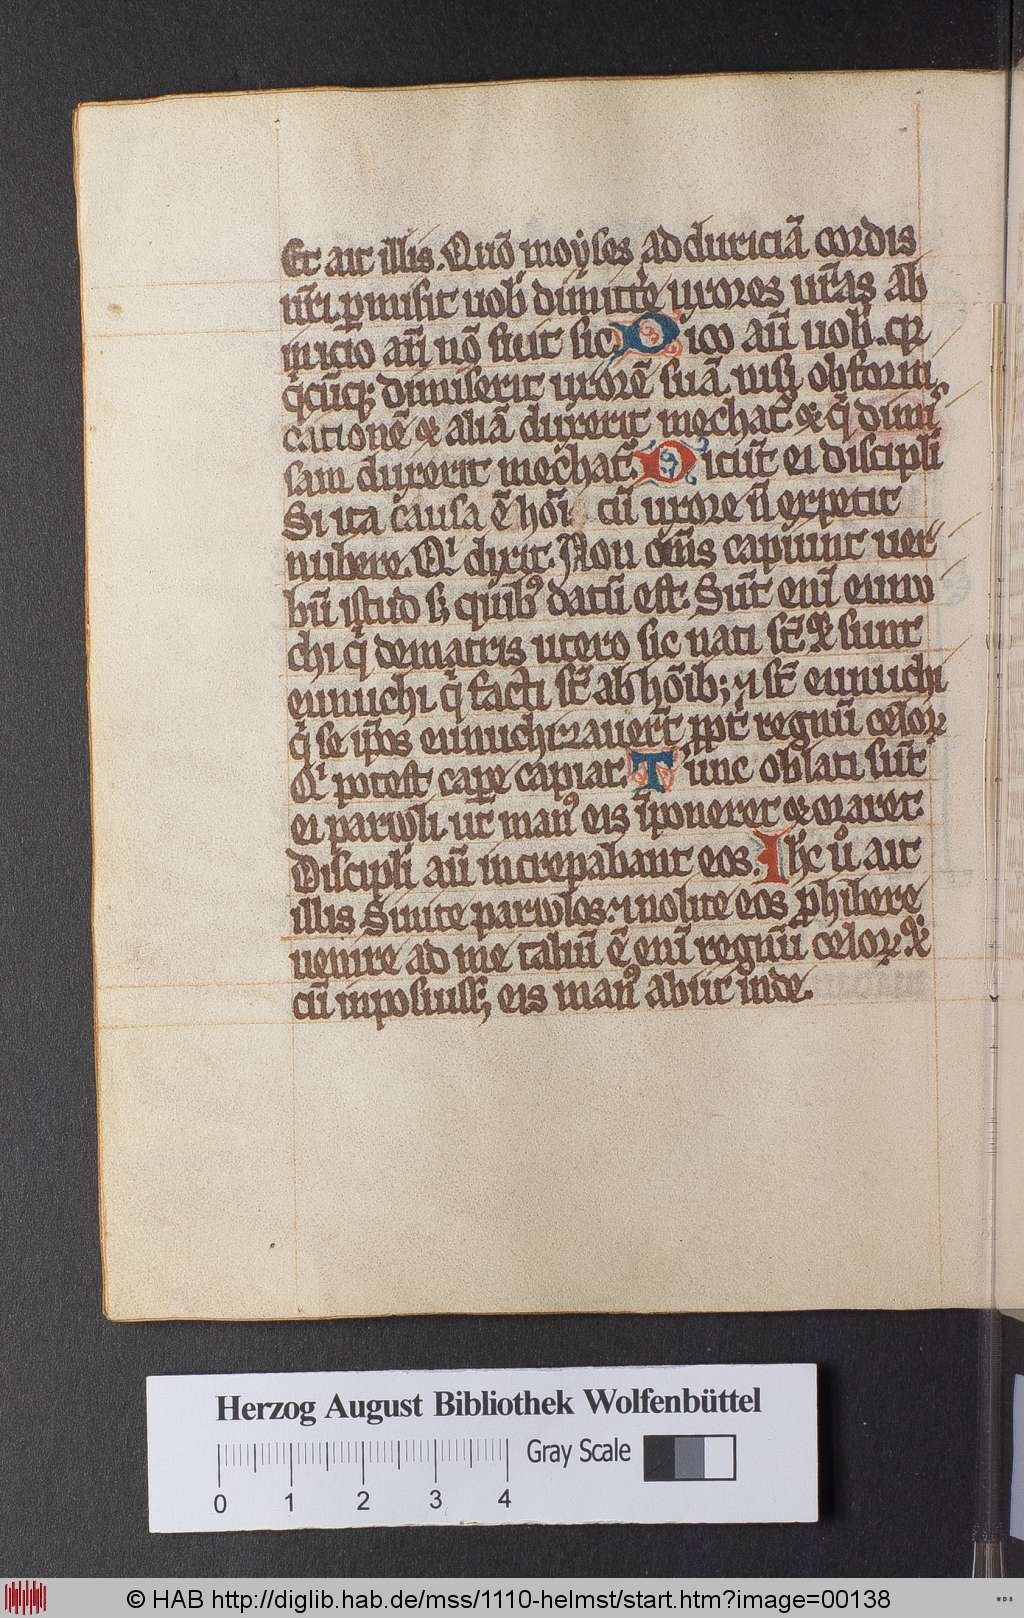 Et ait illis. Quō moyſes ad duriciā cordis
nr̄i. ꝑmiſit uob̄ dimittˀe uxores ur̄as ab
inicio aūt nō fuit ſic Dico aūt uob̄. qꝛ
q̄cūq; dimiſerit uxorē ſuā. niſi ob forni
cationē & aliā duxerit mechat᷑. & q̇ dimiſ
ſam duxerit mechat᷑. Dicūt ei diſcipli
Si ita cauſa ē hōi cū uxore n̄ expetit
nubere. Qͥ dixit. Non om̄s capiunt uer
bū iſtud ſꝫ quibꝰ datū eſt. Sūt enī eunu
chi q̇ de matris utero ſic nati ſt̄. & ſunt
eunuchi q̇ facti ſt̄ ab hōib; ⁊ ſt̄ eunuchi
q̇ ſe ip̄os eunuchizauer̄t ꝓpt᷑ regnū celoꝝ
Qͥ poteſt cap̄e capiat. Tunc oblati ſūt
ei paruuli. ut manꝰ eis īponeret & oraret.
Diſcipli aūt increpabant eos. Ihc uͦ ait
illis Sinite paruulos. ⁊ nolite eos ꝓhibere
uenire ad me taliū ē enī regnū celoꝝ. &
cū inpoſuiſſ; eis manꝰ abiit inde.
Herzog August Bibliothek Wolfenbüttel
Gray Scale
0 1 2 3 4
© HAB http://diglib.hab.de/mss/1110-helmst/start.htm?image=00138